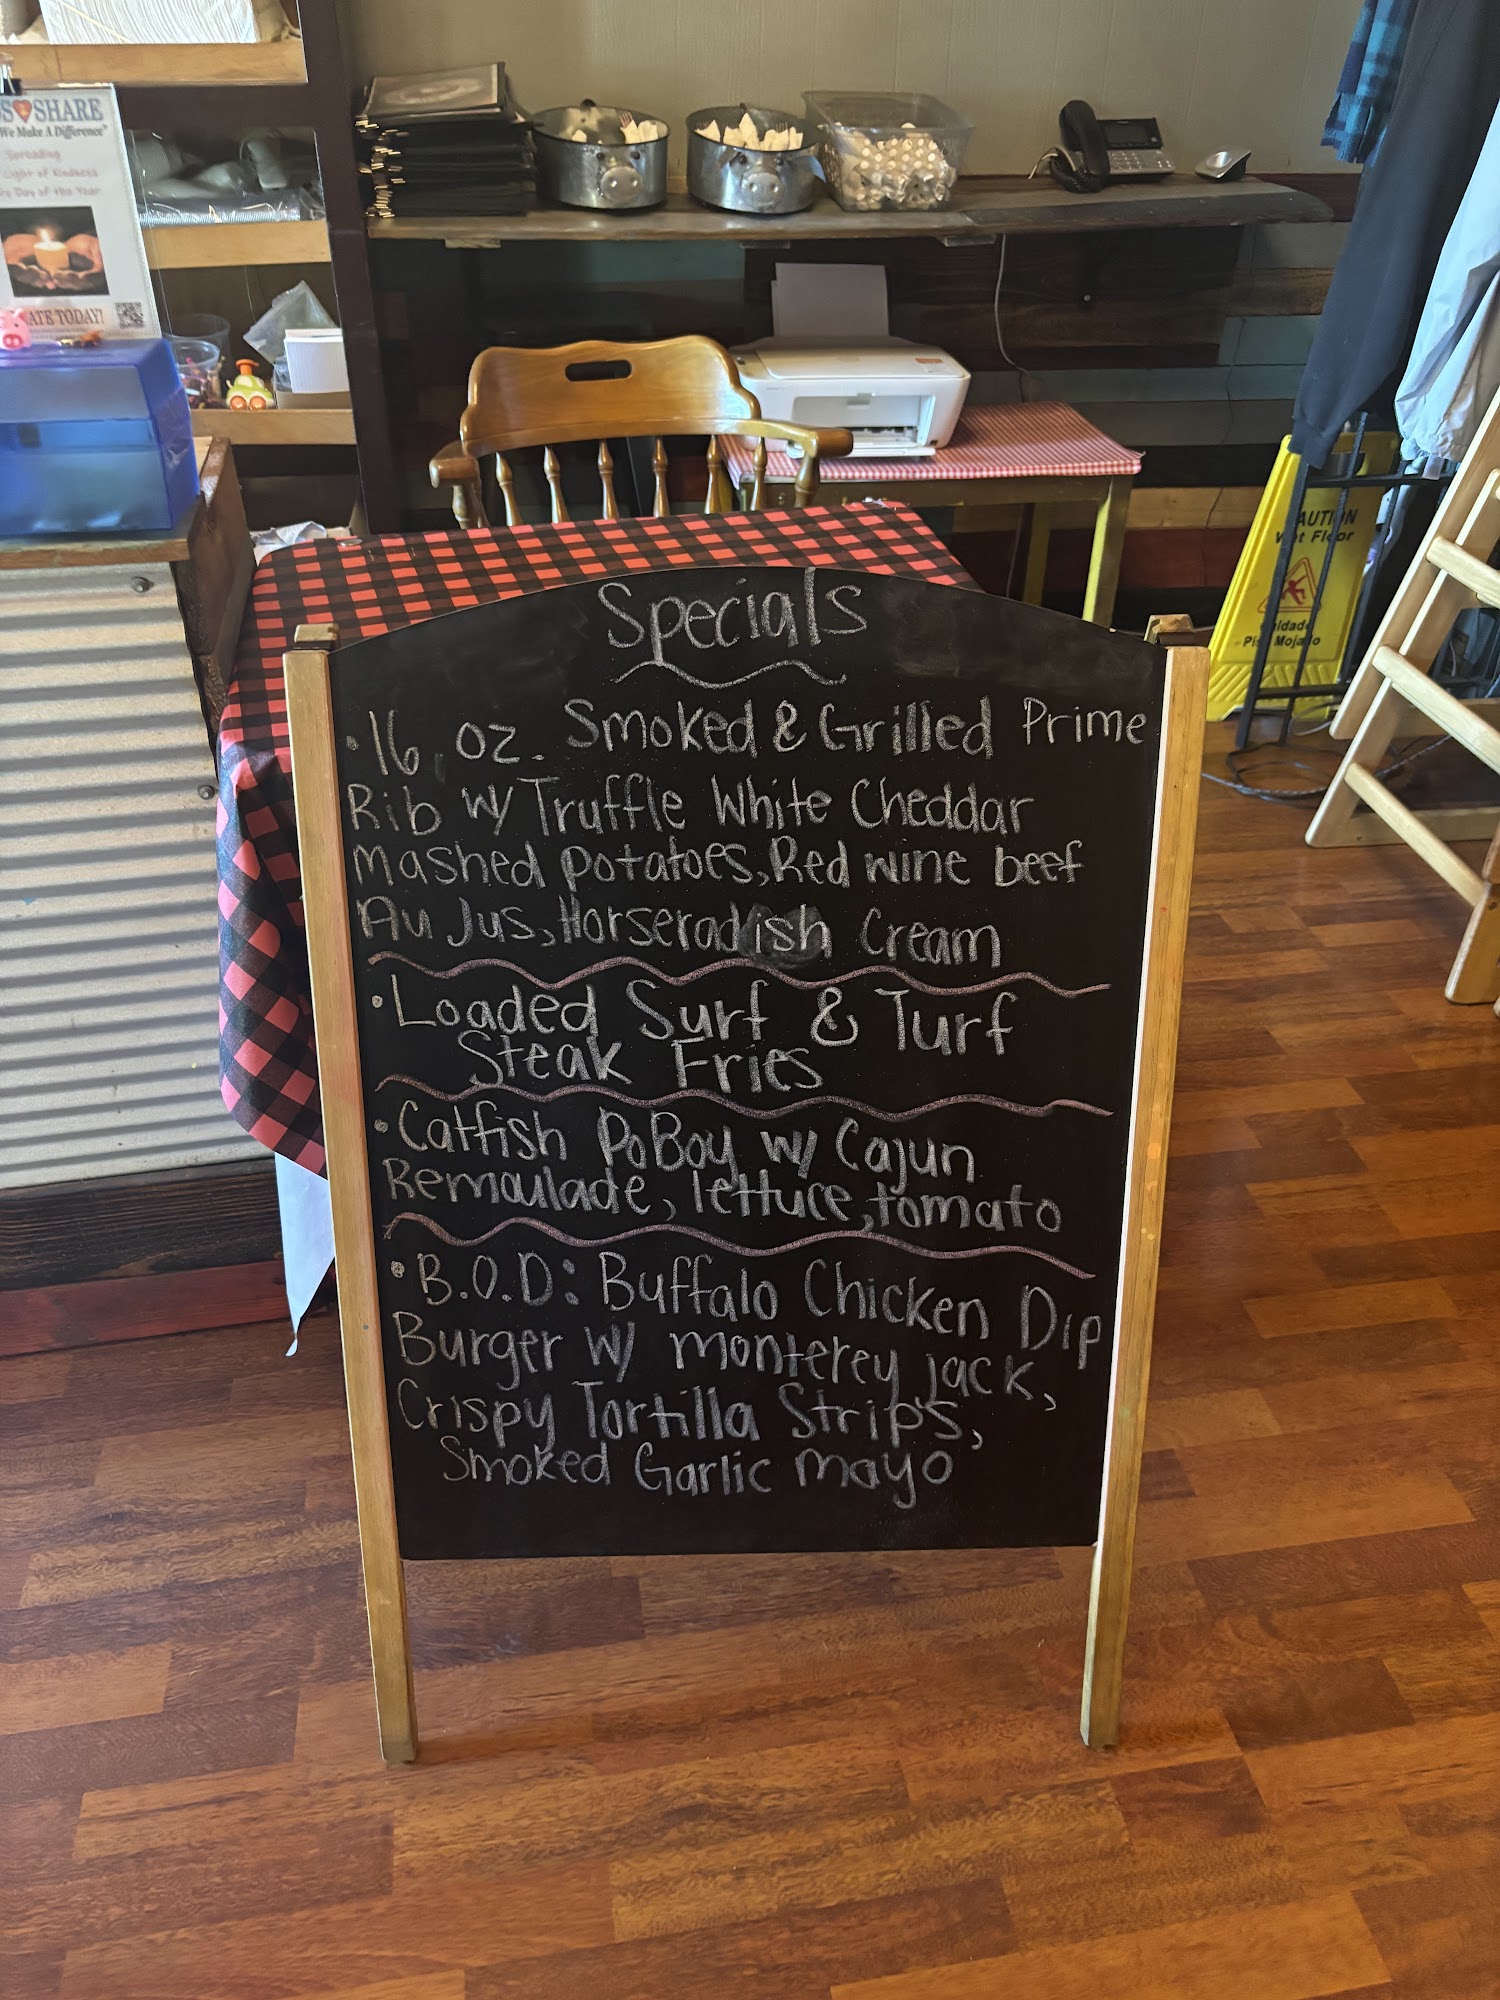 SHARE
We Make A Difference"
Spreading
Light of Kindness
Day of the Year
ATE TODAY!
CAUTION
Wet Floor
Cuidado
Piso Mojado
Specials
• 16 oz. Smoked & Grilled Prime
Rib w/ Truffle White Cheddar
Mashed potatoes, Red wine beef
Au Jus, Horseradish Cream
• Loaded Surf & Turf
Steak Fries
• Catfish PoBoy w/ Cajun
Remoulade, lettuce, tomato
• B.O.D: Buffalo Chicken Dip
Burger w/ monterey jack,
Crispy Tortilla Strips,
Smoked Garlic mayo